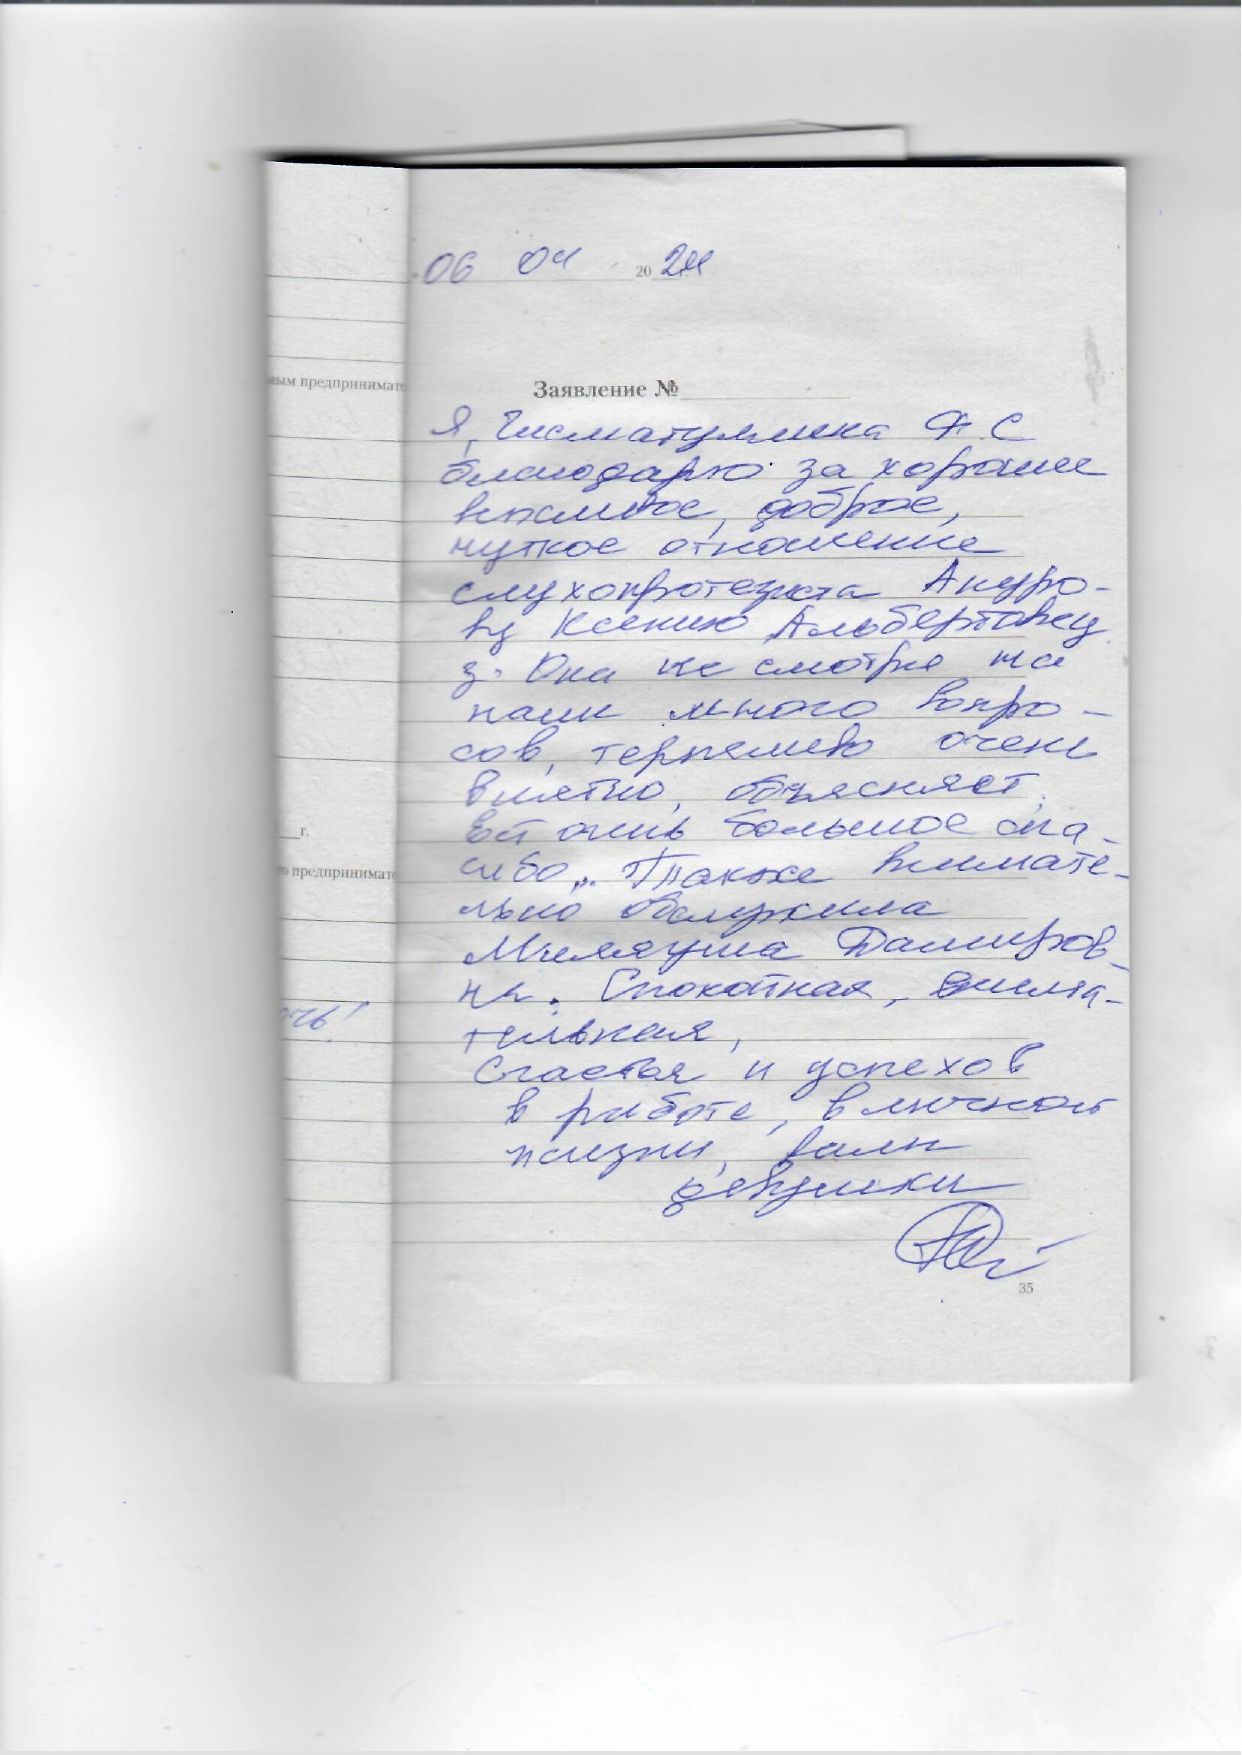 06 04 2024
Заявление №
Я, Гисматуллина Ф. С
благодарю за хорошее
вежливое, доброе,
чуткое отношение
слухопротезиста Ануро-
ву Ксению Альбертовну
з. Она не смотря на
наши много вопро-
сов, терпеливо очень
внятно, объясняет,
ей очень большое спа-
сибо,.. Также внимате-
льно обслужила
Миляуша Дамировна-
на. Спокойная, внима-
тельная,
Счастья и успехов
в работе, в личной
жизни, вам
девушки
35
ным предпринимате
г.
го предпринимате
очь!